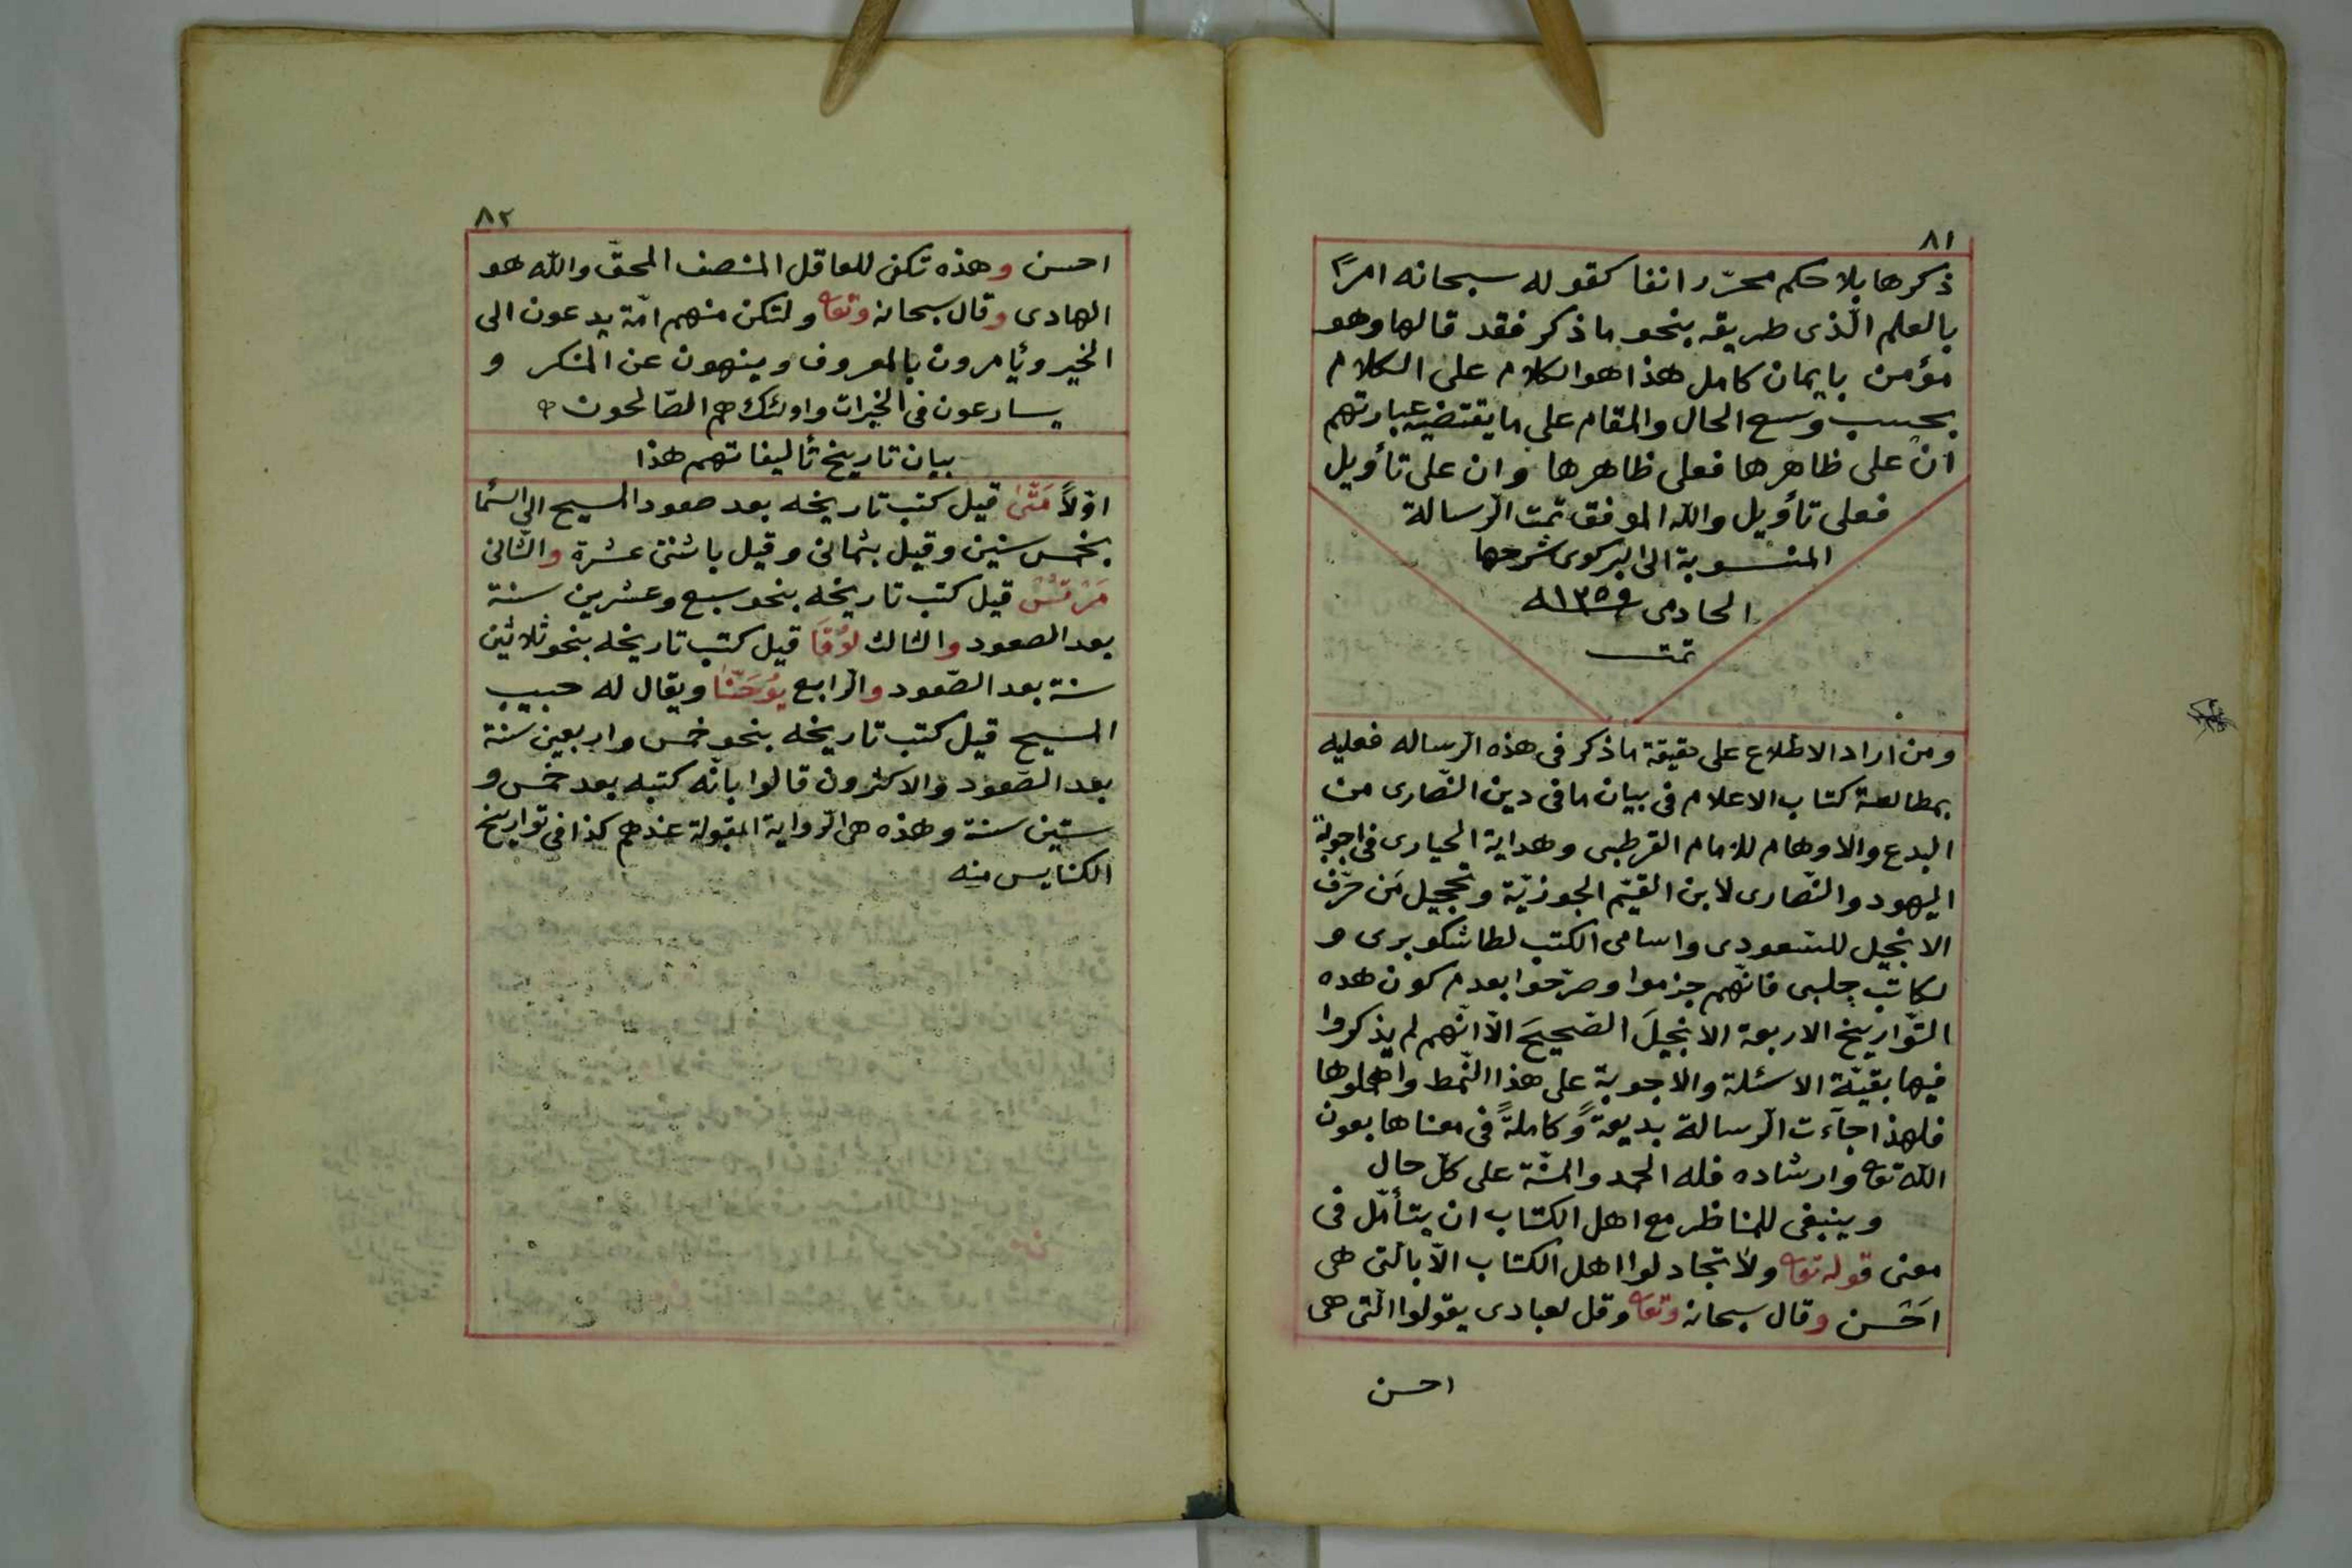 ٨١
ذكرها بلا حكم محرّر انفا كقوله سبحانه امرًا
بالعلم الّذى طريقه بنحو ما ذكر فقد قالها وهو
مؤمن بايمان كامل هذا هو الكلام على الكلام
بحسب وسع الحال والمقام على ما يقتضيه عبارتهم
ان على ظاهرها فعلى ظاهرها وان على تأويل
فعلى تأويل والله الموفق تمت الرسالة
المنسوبة الى البركوى شرحها
الحادمى ١٣٥٩ـه
تمت
ومن اراد الاطلاع على حقيقة ما ذكر فى هذه الرساله فعليه
بمطالعة كتاب الاعلام فى بيان ما فى دين النّصارى من
البدع والاوهام للامام القرطبى وهداية الحيارى فى اجوبة
اليهود والنّصارى لابن القيّم الجوزيّة وتخجيل مَن حرّف
الانجيل للسعودى واسامى الكتب لطاشكوبرى و
لكاتب جلبى فانّهم جزموا وصرّحوا بعدم كون هده
التّواريخ الاربعة الانجيلَ الصّحيحَ الّا انّهم لم يذكروا
فيها بقيّة الاسئلة والاجوبة على هذا النّمط واهملوها
فلهذا جآءت الرسالة بديعةً وكاملةً فى معناها بعون
الله تعا وارشاده فله الحمد والمنّة على كلّ حال
وينبغى للمناظر مع اهل الكتاب ان يتأمّل فى
معنى قوله تعا ولا تجادلوا اهل الكتاب الّا بالّتى هى
اَحْسن وقال سبحانه وتعا وقل لعبادى يقولوا الّتى هى
احسن
٨٢
احسن وهذه تكفى للعاقل المنصف المحقّ والله هو
الهادى وقال سبحانه وتعا ولتكن منهم امّة يدعون الى
الخير ويأمرون بالمعروف وينهون عن المنكر و
يسارعون فى الخيرات واولئك هم الصّالحون
بيان تاريخ تأليفاتهم هذا
اوّلاً مَتّى قيل كتب تاريخه بعد صعود المسيح الى السّما
بخمس سنين وقيل بثمانى وقيل باثنتى عشرة والثّانى
مَرْقُسْ قيل كتب تاريخه بنحو سبع وعشرين سنة
بعد الصعود والثالث لُوْقَا قيل كتب تاريخه بنحو ثلاثين
سنة بعد الصّعود والرّابع يُوْحَنّا ويقال له حبيب
المسيح قيل كتب تاريخه بنحو خمس واربعين سنة
بعد الصّعود والاكثرون قالوا بانّه كتبه بعد خمس و
ستين سنة وهذه هى الرّواية المقبولة عندهم كذا فى تواريخ
الكنايس منه